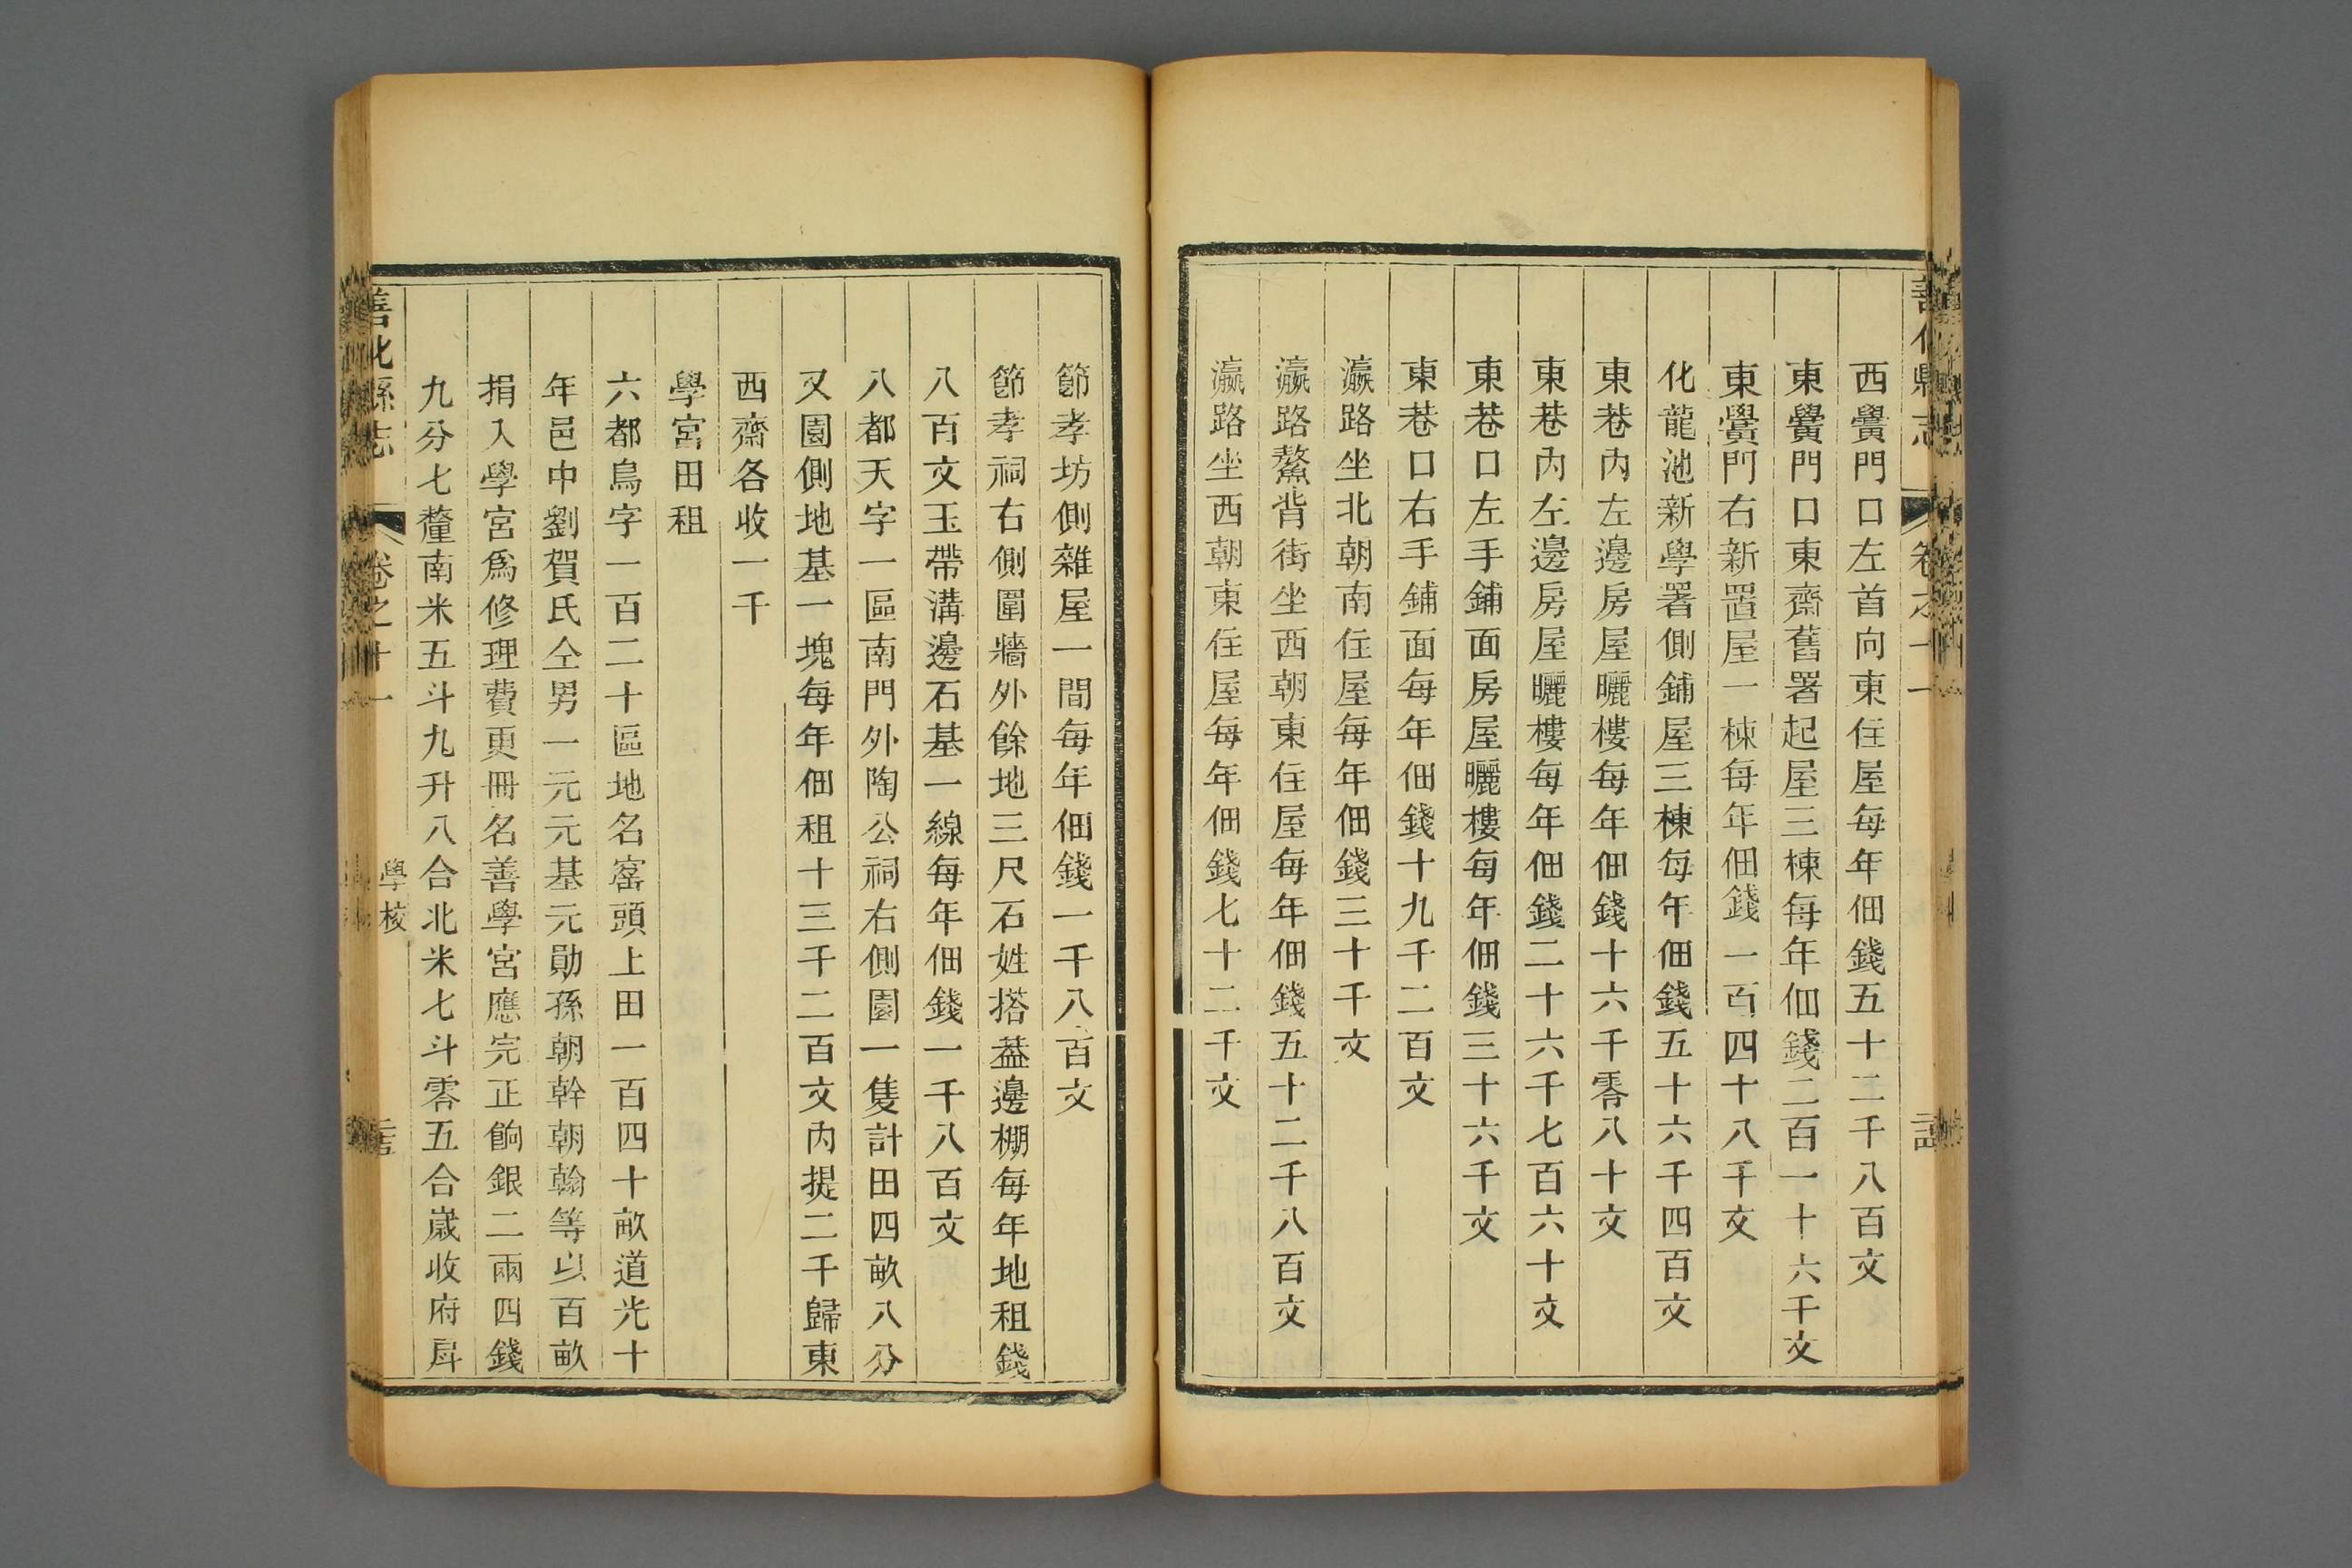 善化縣志 卷之十一
西黌門口左首向東住屋每年佃錢五十二千八百文
東黌門口東齋舊署起屋三棟每年佃錢二百一十六千文
東黌門右新置屋一棟每年佃錢一百四十八千文
化龍池新學署側鋪屋三棟每年佃錢五十六千四百文
東巷內左邊房屋曬樓每年佃錢十六千零八十文
東巷內左邊房屋曬樓每年佃錢二十六千七百六十文
東巷口左手鋪面房屋曬樓每年佃錢三十六千文
東巷口右手鋪面每年佃錢十九千二百文
瀛路坐北朝南住屋每年佃錢三十千文
瀛路鰲背街坐西朝東住屋每年佃錢五十二千八百文
瀛路坐西朝東住屋每年佃錢七十二千文
節孝坊側雜屋一間每年佃錢一千八百文
節孝祠右側圍牆外餘地三尺石姓搭葢邊棚每年地租錢
八百文玉帶溝邊石基一線每年佃錢一千八百文
八都天字一區南門外陶公祠右側園一隻計田四畝八分
又園側地基一塊每年佃租十三千二百文內提二千歸東
西齋各收一千
學宮田租
六都鳥字一百二十區地名窰頭上田一百四十畝道光十
年邑中劉賀氏仝男一元元基元勛孫朝幹朝翰等以百畝
捐入學宮爲修理費更冊名善學宮應完正餉銀二兩四錢
九分七釐南米五斗九升八合北米七斗零五合歲收府斛
善化縣志 卷之十一 學校